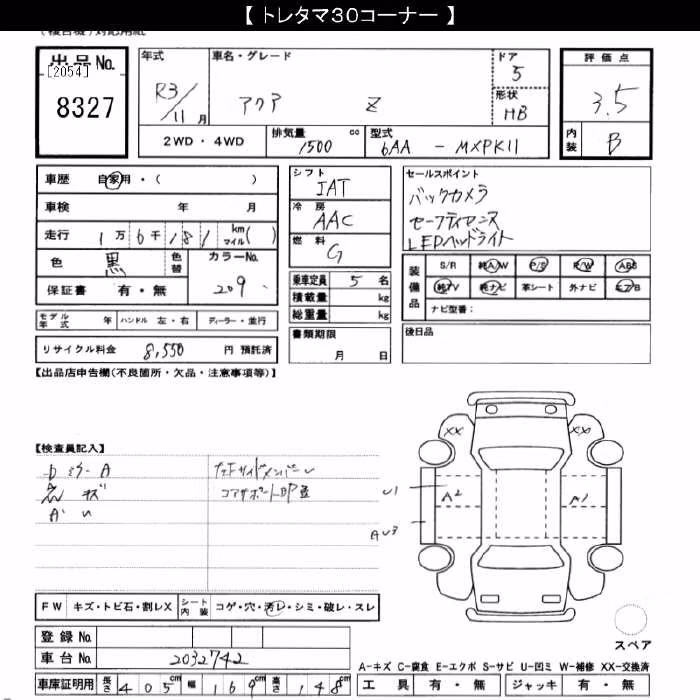 【 トレタマ30コーナー 】
出品No.
[2054]
8327
年式
R3/11月
車名・グレード
アクア Z
ドア
5
形状
HB
評価点
3.5
内装
B
2WD・4WD
排気量 1500 cc
型式 6AA - MXPK11
車歴 自家用・( )
車検 年 月
走行 1万 6千 181 km マイル( )
色 黒 色替
カラーNo. 209
保証書 有・無
シフト
IAT
冷房
AAC
燃料
G
乗車定員 5 名
積載量 kg
総重量 kg
書類期限
月 日
セールスポイント
バックカメラ
LEDヘッドライト
装備品
S/R 純A/W P/S P/W ABS
純TV 純ナビ 革シート 外ナビ エアB
ナビ型番:
後日品
モデル年式 年 ハンドル 左・右 ディーラー・並行
リサイクル料金 8,550 円 預託済
【出品店申告欄(不良箇所・欠品・注意事項等)】
【検査員記入】
XX XX
U1 A2 A1
AU3
FW キズ・トビ石・割レX シート内装 コゲ・穴・汚レ・シミ・破レ・スレ
登録No.
車台No. 2032742
車庫証明用 長さ 405 cm 幅 169 cm 高さ 148 cm
スペア
A-キズ C-腐食 E-エクボ S-サビ U-凹ミ W-補修 XX-交換済
工具 有・無 ジャッキ 有・無